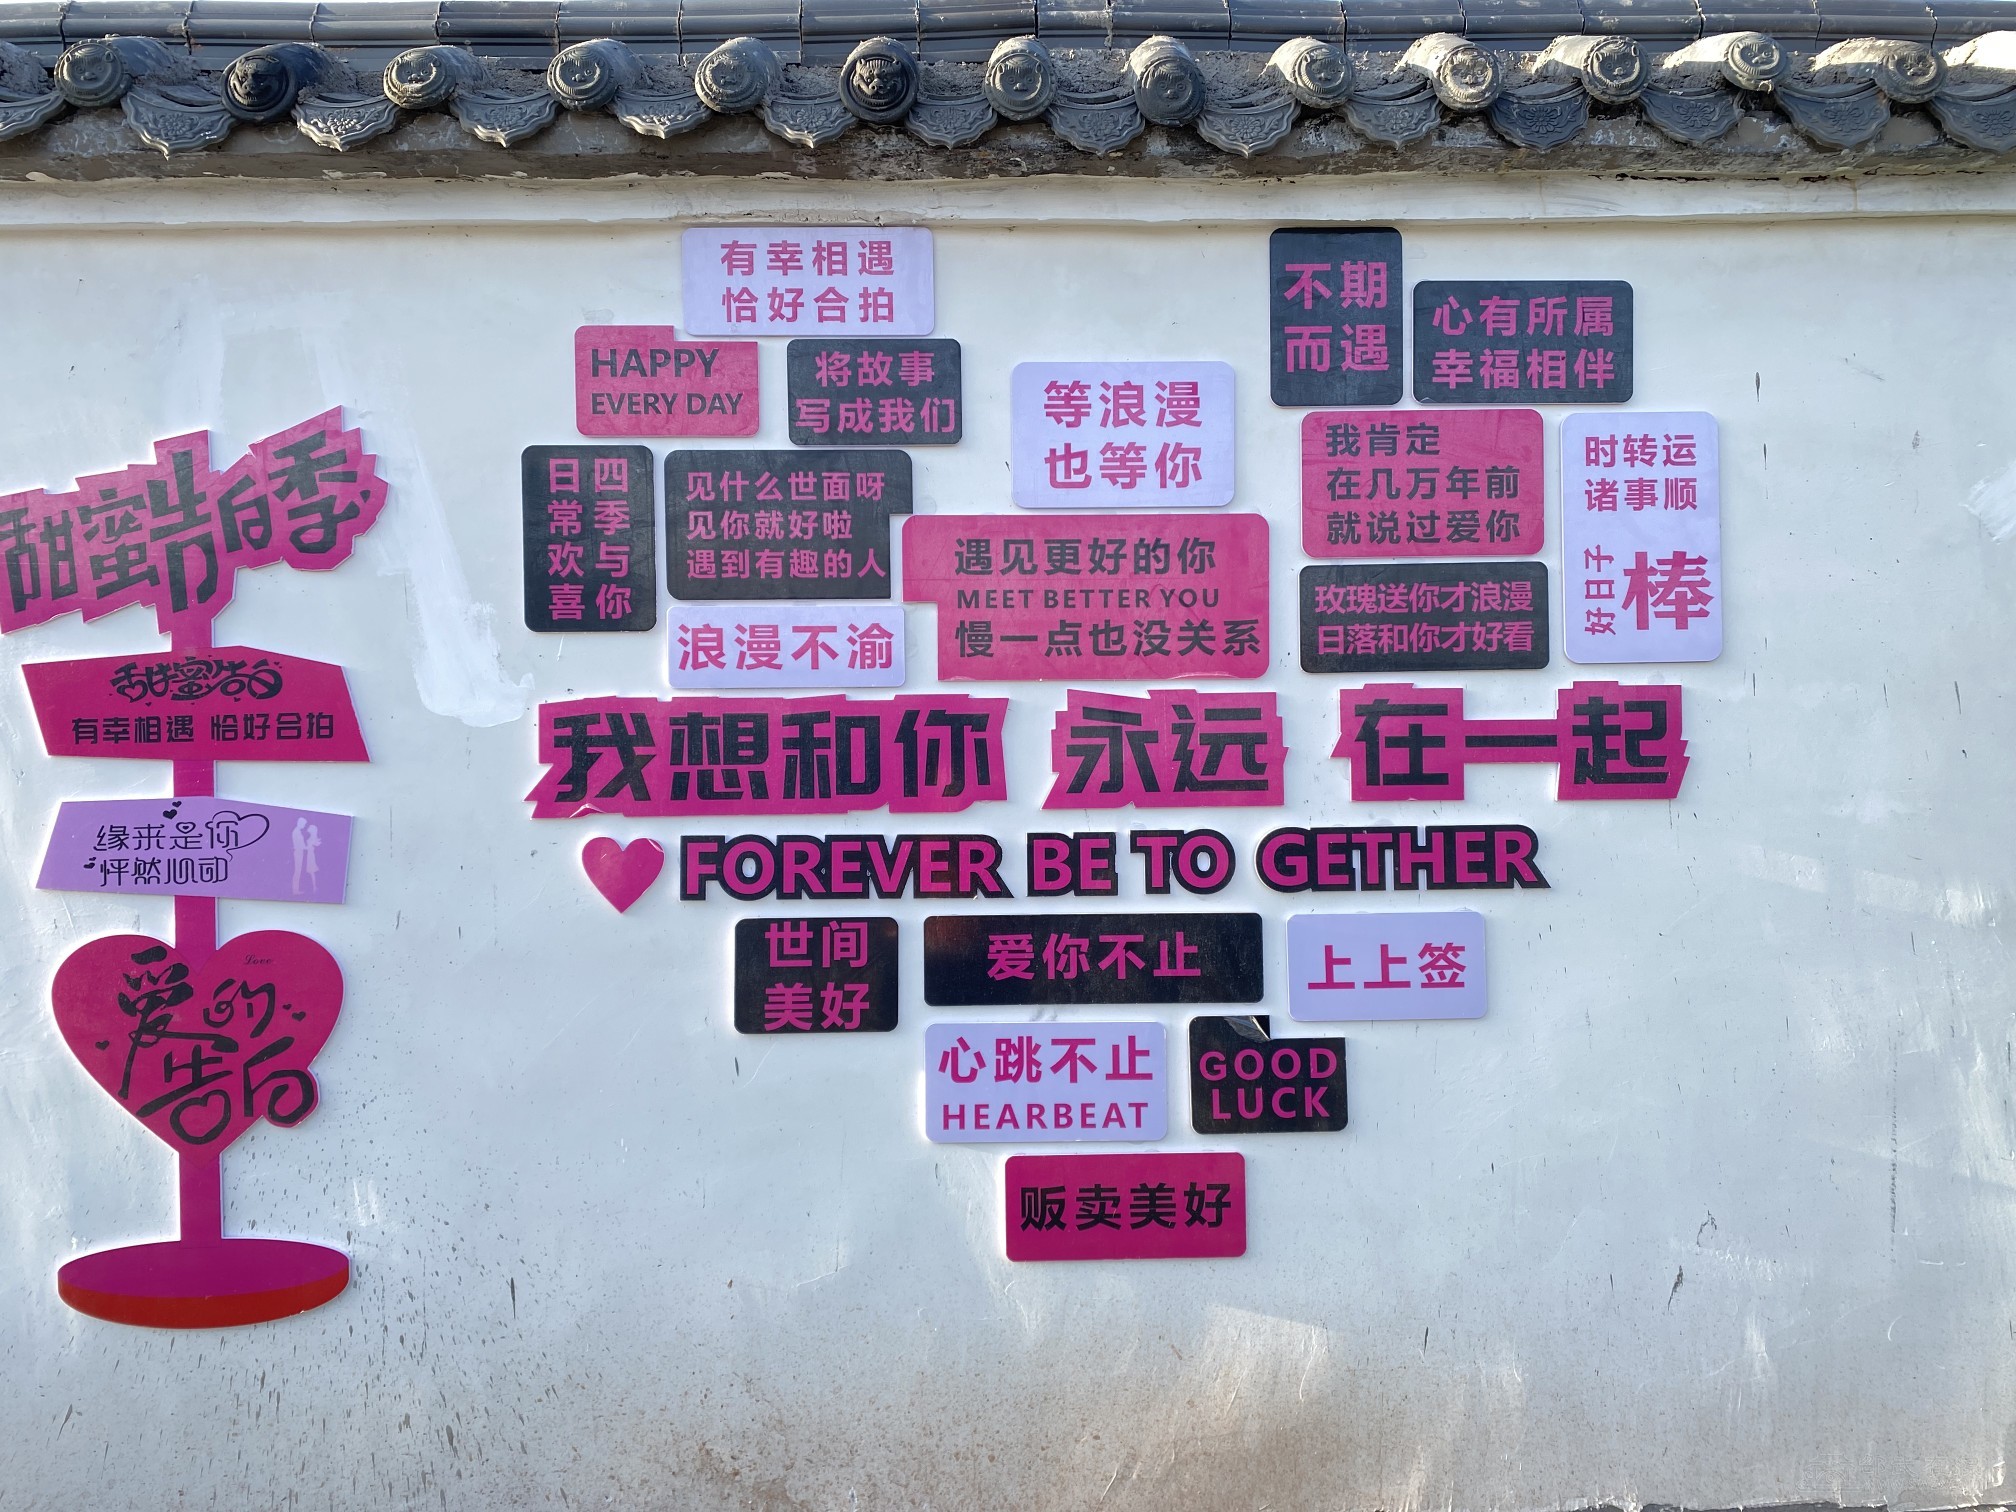 甜蜜告白季
甜蜜告白
有幸相遇 恰好合拍
缘来是你
怦然心动
Love
爱的
告白
有幸相遇
恰好合拍
HAPPY
EVERY DAY
将故事
写成我们
日常欢喜
四季与你
见什么世面呀
见你就好啦
遇到有趣的人
浪漫不渝
等浪漫
也等你
遇见更好的你
MEET BETTER YOU
慢一点也没关系
不期
而遇
心有所属
幸福相伴
我肯定
在几万年前
就说过爱你
时转运
诸事顺
好日子
棒
玫瑰送你才浪漫
日落和你才好看
我想和你 永远 在一起
FOREVER BE TO GETHER
世间
美好
爱你不止
上上签
心跳不止
HEARBEAT
GOOD
LUCK
贩卖美好